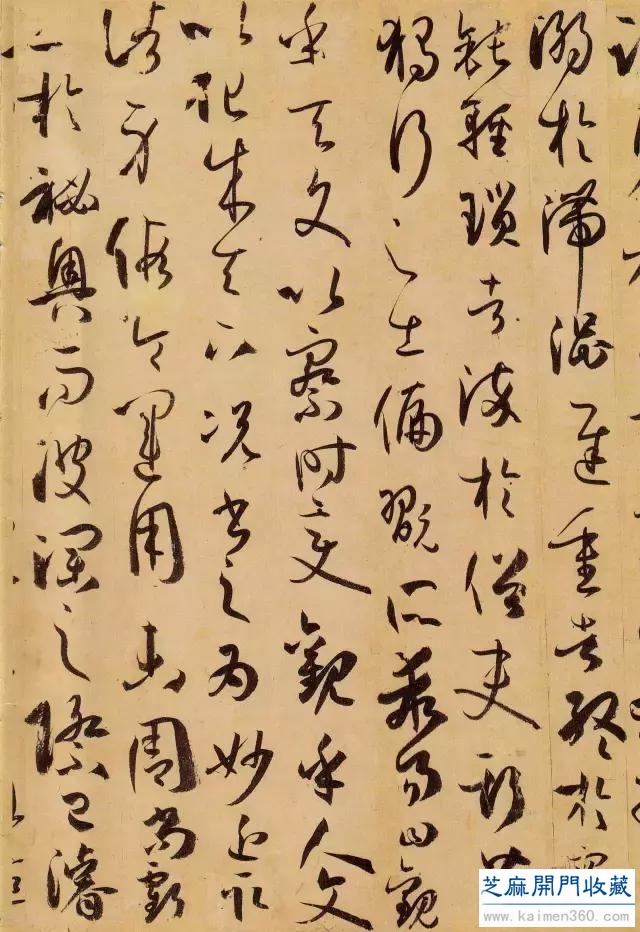 溺於滯澀遲重者終於蹇
鈍輕瑣者染於俗吏斯皆
獨行之士偏翫所乖易曰觀
乎天文以察時變觀乎人文
以化成天下況書之為妙近取
諸身假令運用未周尚虧
工於祕奧而波瀾之際已濬
芝麻開門收藏
www.kaimen360.com